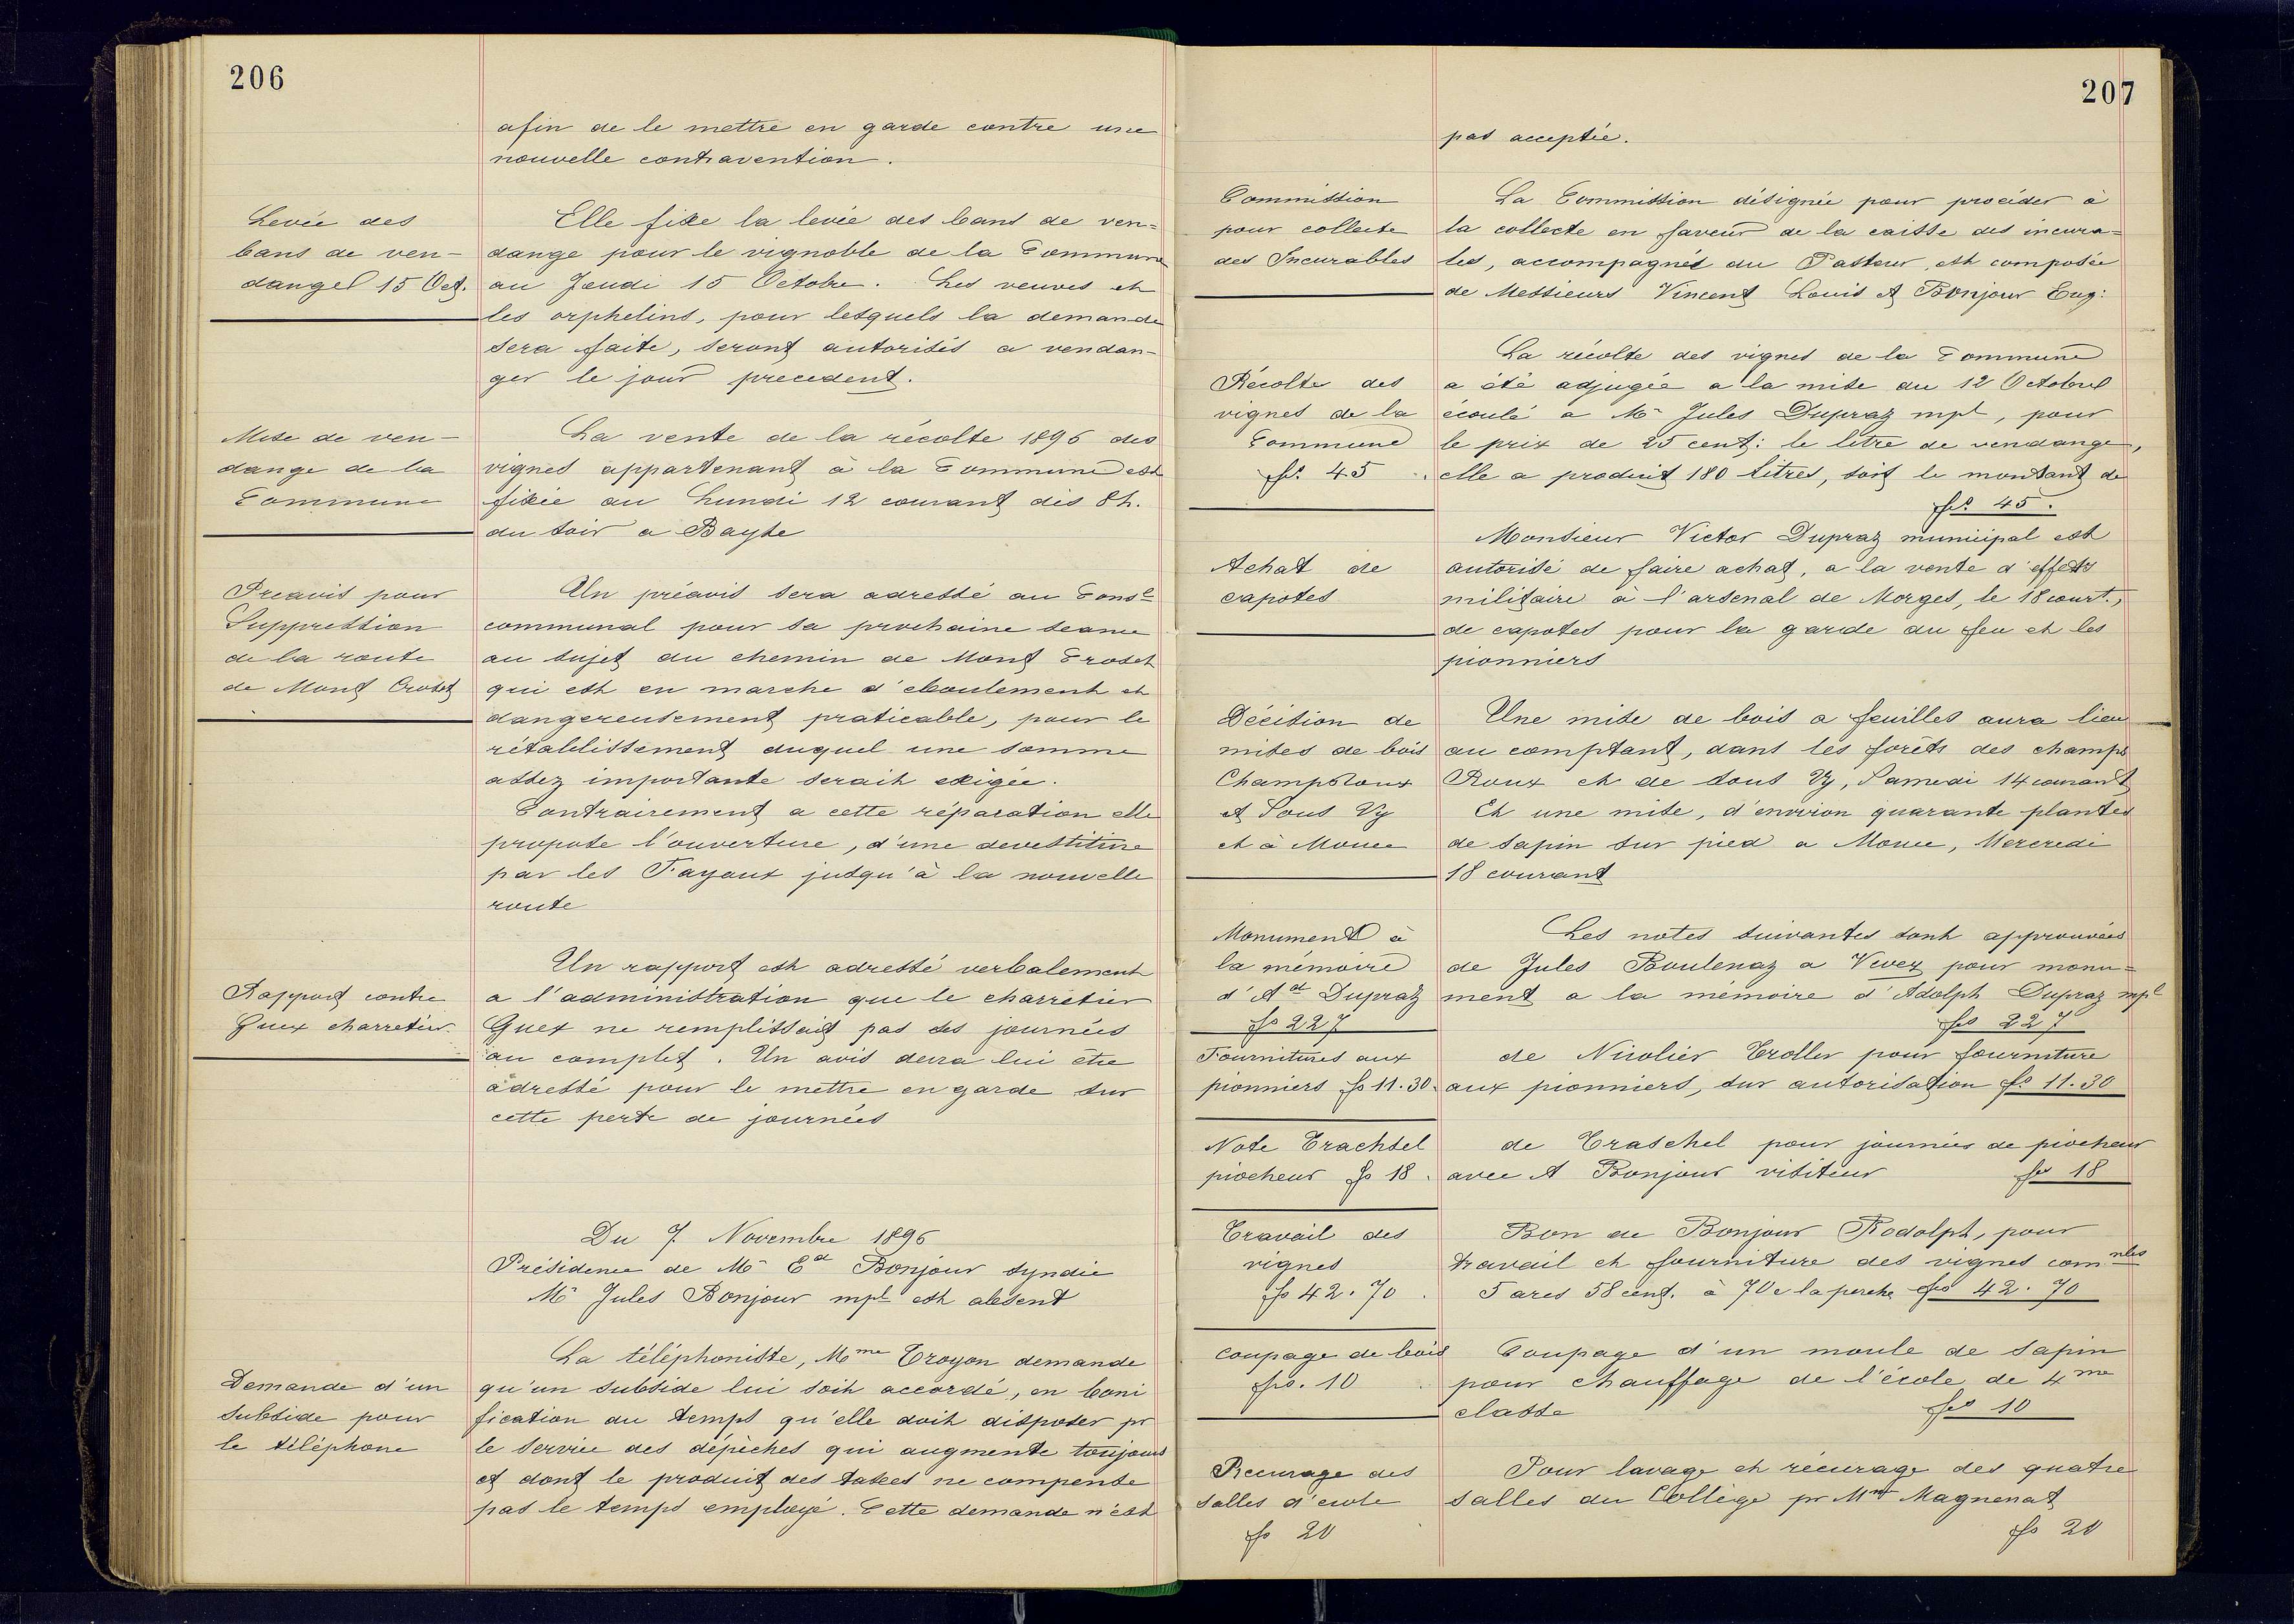 206
afin de le mettre en garde contre une
nouvelle contravention.
Levée des
bans de ven-
danges 15 Oct.
Elle fixe la levée des bans de ven=
dange pour le vignoble de la Commune
au Jeudi 15 Octobre. Les veuves et
les orphelins, pour lesquels la demande
sera faite, seront autorisés a vendan-
ger le jour precedent.
Mise de ven-
dange de la
Commune
La vente de la récolte 1896 des
vignes appartenant à la Commune est
fixée au Lundi 12 courant dès 8 h.
du soir a Bayse
Preavis pour
Suppression
de la route
de Mont Croset
Un préavis sera adressé au Consl
communal pour sa prochaine seance
au sujet du chemin de Mont Croset
qui est en marche d'eboulement et
dangereusement praticable, pour le
rétablissement duquel une somme
assez importante serait exigée.
Contrairement a cette réparation elle
propose l'ouverture, d'une devestiture
par les Fayoux jusqu'à la nouvelle
route
Rapport contre
Guex charretier
Un rapport est adressé verbalement
a l'administration que le charretier
Guex ne remplissait pas ses journées
au complet. Un avis devra lui être
adressé pour le mettre en garde sur
cette perte de journées
Du 7. Novembre 1896
Présidence de Mr Ed Bonjour syndic
Mr Jules Bonjour mpl est absent
Demande d'un
subside pour
le téléphone
La téléphoniste, Mme Troyon demande
qu'un subside lui soit accordé, en boni
fication du temps qu'elle doit disposer pr
le service des dépêches qui augmente toujours
et dont le produit des taxes ne compense
pas le temps employé. Cette demande n'est
207
pas acceptée.
Commission
pour collecte
des Incurables
La Commission désignée pour procéder à
la collecte en faveur de la caisse des incura=
bles, accompagnés du Pasteur, est composée
de Messieurs Vincent Louis et Bonjour Eug:
Récolte des
vignes de la
Commune
fs. 45.
La récolte des vignes de la Commune
a été adjugée a la mise du 12 Octobre
écoulé a Mr Jules Dupraz mpl, pour
le prix de 25 cent: le litre de vendange,
elle a produit 180 litres, soit le montant de
fs. 45.
Achat de
capotes
Monsieur Victor Dupraz municipal est
autorisé de faire achat, a la vente d'effets
militaire à l'arsenal de Morges, le 18 court.,
de capotes pour la garde du feu et les
pionniers
Décision de
mises de bois
Champs Roux
et Sous Vy
et à Mouce
Une mise de bois a feuilles aura lieu
au comptant, dans les forêts des champs
Roux et de sous Vy, Samedi 14 courant
Et une mise, d'environ quarante plantes
de sapin sur pied a Mouce, Mercredi
18 courant
Monument à
la mémoire
d'Ad Dupraz
fs 227
Les notes suivantes sont approuvées
de Jules Boulenaz a Vevey pour monu=
ment a la mémoire d'Adolph Dupraz mpl
fs 227
Fournitures aux
pionniers fs 11.30.
de Nicolier Troller pour fourniture
aux pionniers, sur autorisation fs. 11.30
Note Trachsel
piocheur fs 18.
de Traschel pour journées de piocheur
avec A Bonjour visiteur fs 18
Travail des
vignes
fs 42.70.
Bon de Bonjour Rodolph, pour
travail et fourniture des vignes comnles
5 ares 58 cent. à 70 c la perche fs 42.70
Coupage de bois
fs. 10.
Coupage d'un moule de sapin
pour chauffage de l'école de 4me
classe fs 10
Recurage des
salles d'ecole
fs 20
Pour lavage et récurage des quatre
salles du Collège pr Mme Magnenat
fs 20